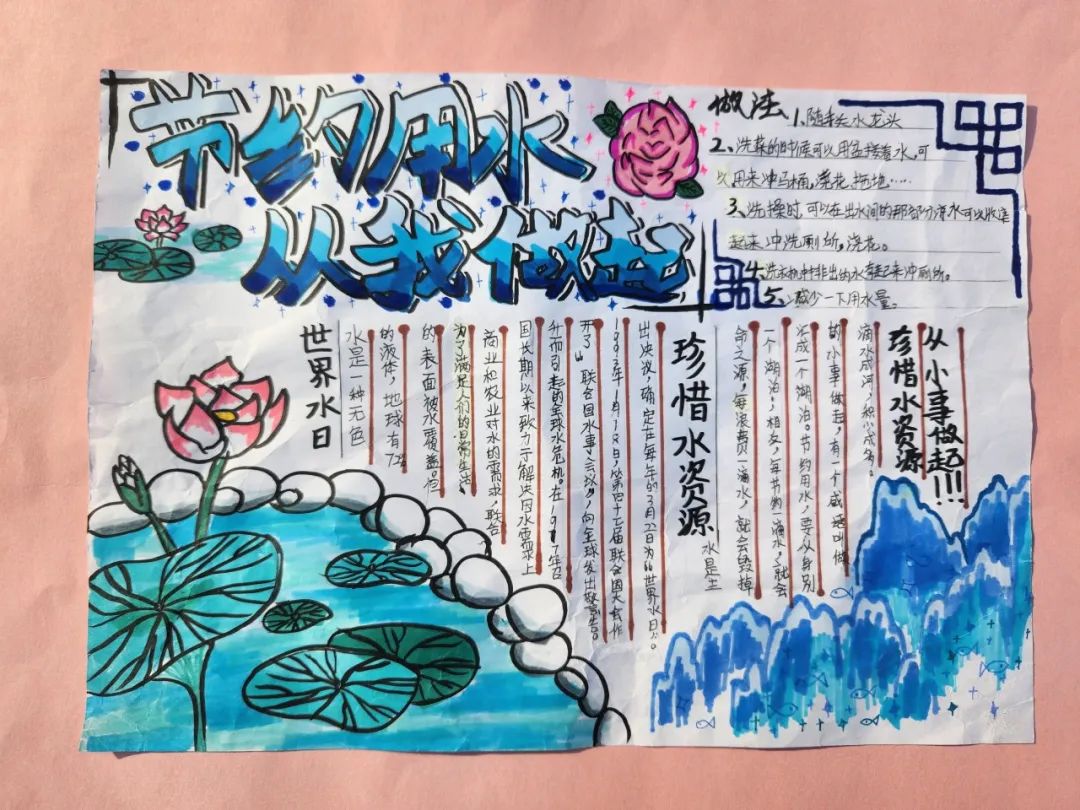 节约用水
从我做起
做法
1、随手关水龙头
2、洗菜的时候可以用盆接着水,可
以用来冲马桶,浇花,拖地……
3、洗澡时,可以在出水间的那部分凉水可以收集
起来冲洗厕所,浇花。
4、洗衣机排出的水起来冲厕所。
5、减少一下用水量。
世界水日
水是一种无色
的液体,地球有72%
的表面被水覆盖。但
为了满足人们的日常生活、
商业和农业对水的需求,联合
国长期以来致力于解决因水需求上
升而引起的全球水危机。在1977年召
开了“联合国水事会议”,向全球发出警告。
1993年1月18日,第四十七届联合国大会作
出决议,确定在每年的3月22日为“世界水日”。
珍惜水资源
水是生
命之源,每浪费一滴水,就会毁掉
一个湖泊;相反,每节约一滴水,就会
汇成一个湖泊。节约用水,要从身别
的小事做起,有一个成语叫做
滴水成河,积少成多。
珍惜水资源
从小事做起!!!